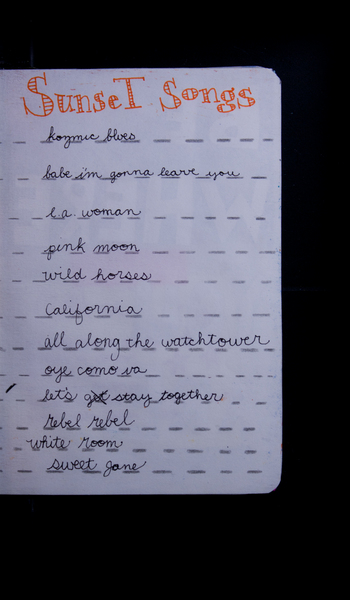 Sunset Songs
kozmic blues
babe i'm gonna leave you
l.a. woman
pink moon
wild horses
California
all along the watchtower
oye como va
let's stay together
rebel rebel
white room
sweet jane